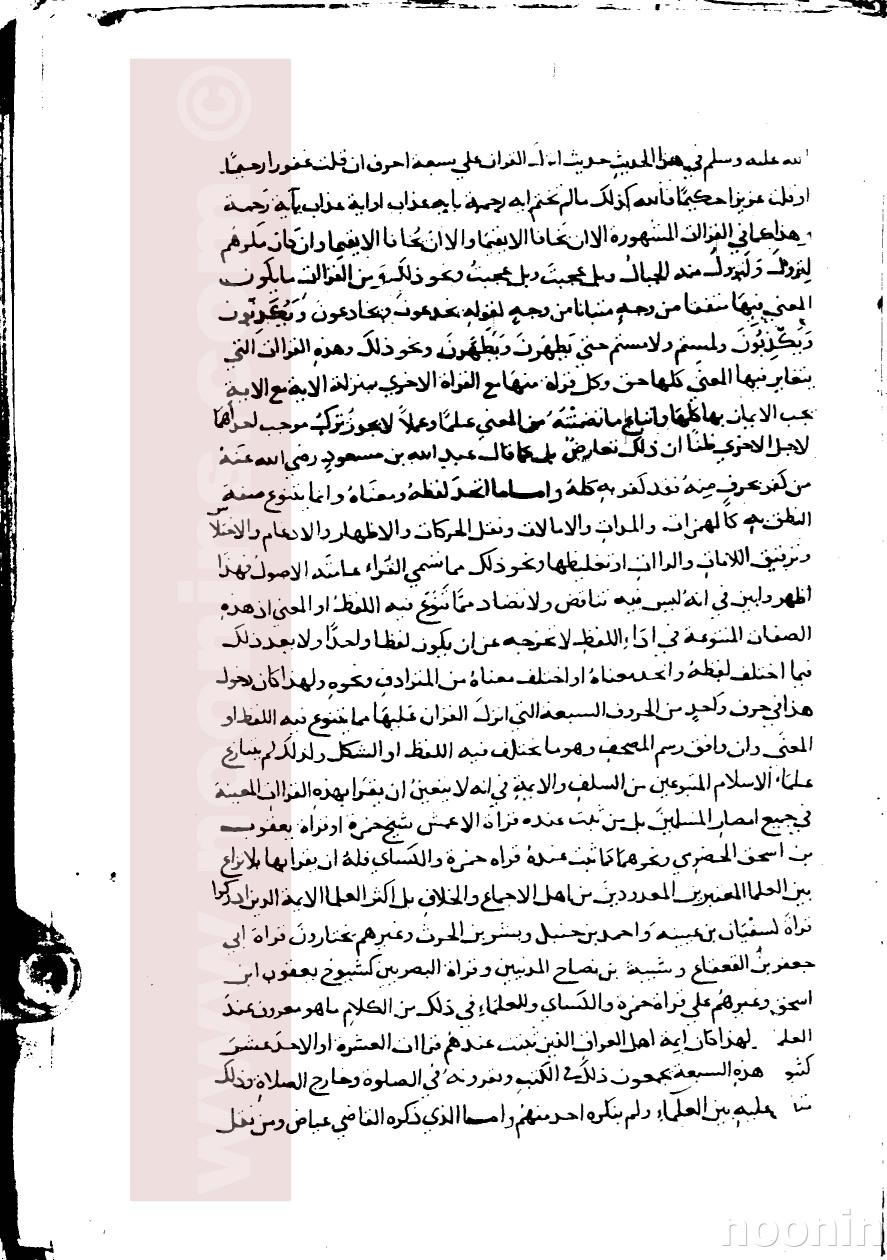 الله عليه وسلم في هذا الحديث حديث انزل القران على سبعة احرف ان قلت غفورا رحيما
او قلت عزيزا حكيما فالله كذلك مالم تختم اية رحمة باية عذاب او اية عذاب بآية رحمة
وهذا كما في القراات المشهورة الا ان يخافا الا يقيما والا ان يُخافا الا يقيما وان كان مكرهم
لِتزولَ ولَتزولُ منه الجبال وبل عجبتَ وبل عجبتُ ونحو ذلك ومن القراات ما يكون
المعنى فيها متفقا من وجه متباينا من وجه لقوله يخدعون ويخادعون ويَكْذِبون
ويُكَذِّبُونَ ولمستم ولامستم حتى يَطْهرن ويَطَّهَّرن ونحو ذلك وهذه القراات التي
يتغاير فيها المعنى كلها حق وكل قراة منها مع القراة الاخرى بمنزلة الاية مع الاية
يجب الايمان بها كلها واتباع ما تضمنته من المعنى علما وعملا لا يجوز ترك موجب احداهما
لاجل الاخرى ظنا ان ذلك تعارض بل كما قال عبد الله بن مسعود رضي الله عنه
من كفر بحرف منه فقد كفر به كله واما ما اتحد لفظه ومعناه وانما يتنوع صفة
النطق به كالهمزات والمدات والامالات ونقل الحركات والاظهار والادغام والاختلاس
وترقيق اللامات والراات او تغليظها ونحو ذلك مما تسمي القراء عامته الاصول فهذا
اظهر وابين في انه ليس فيه تناقض ولا تضاد مما تنوع فيه اللفظ او المعنى اذ هذه
الصفات المتنوعة في اداء اللفظ لا تخرجه عن ان يكون لفظا واحدا ولا يعد ذلك
فيما اختلف لفظه واتحد معناه او اختلف معناه من المترادف ونحوه ولهذا كان دخول
هذا في حرف واحد من الحروف السبعة التي انزل القران عليها مما يتنوع فيه اللفظ او
المعنى وان وافق رسم المصحف وهو ما يختلف فيه اللفظ او الشكل ولذلك لم يتنازع
علماء الاسلام المتبوعين من السلف والايمة في انه لا يتعين ان يقرا بهذه القراات المعينة
في جميع امصار المسلمين بل من ثبت عنده قراة الاعمش شيخ حمزة او قراة يعقوب
بن اسحق الحضرمي ونحوهما كما ثبت عنده قراة حمزة والكساي فله ان يقرا بها بلا نزاع
بين العلما المعتبرين المعدودين من اهل الاجماع والخلاف بل اكثر العلما الايمة الذين ادركوا
قراة كسفيان بن عيينه واحمد بن حنبل وبشر بن الحرث وغيرهم يختارون قراة ابي
جعفر بن القعقاع وشيبة بن نصاح المدنيين وقراة البصريين كشيوخ يعقوب ابن
اسحق وغيرهم على قراة حمزة والكساي وللعلماء في ذلك من الكلام ما هو معروف عند
العلما ولهذا كان ايمة اهل العراق الذين ثبتت عندهم قراات العشرة او الاحد عشر
كثبوت هذه السبعة يجمعون ذلك في الكتب ويقرونه في الصلوة وخارج الصلاة وذلك
عليه بين العلماء ولم ينكره احد منهم واما الذي ذكره القاضي عياض ومن نقل
www.noonins.com ©
noonin